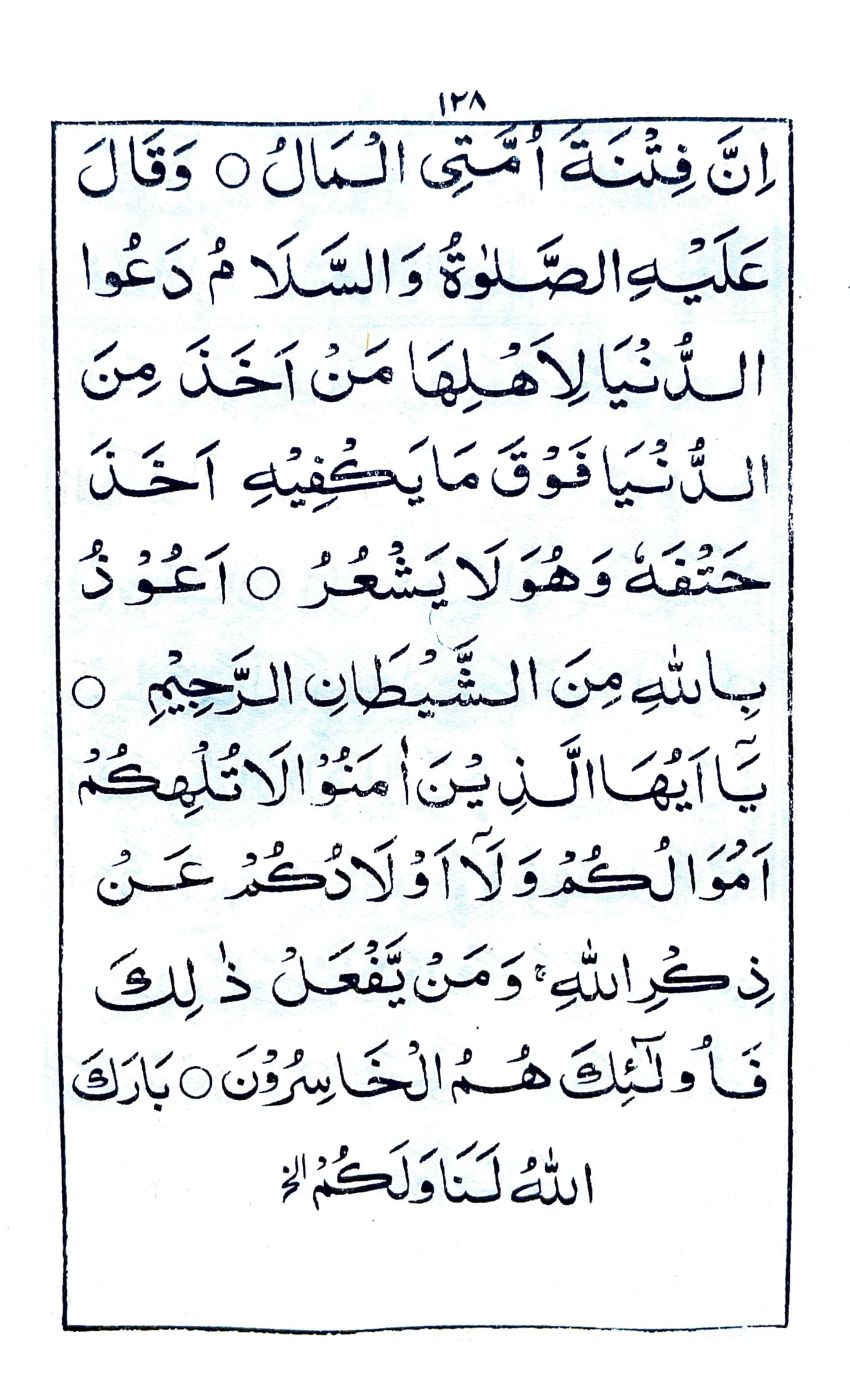 ١٣٨
اِنَّ فِتْنَةَ اُمَّتِى الْمَالُ ○ وَقَالَ
عَلَيْهِ الصَّلٰوةُ وَالسَّلَامُ دَعُوا
الدُّنْيَا لِاَهْلِهَا مَنْ اَخَذَ مِنَ
الدُّنْيَا فَوْقَ مَا يَكْفِيْهِ اَخَذَ
حَتْفَهٗ وَهُوَ لَا يَشْعُرُ ○ اَعُوْذُ
بِاللّٰهِ مِنَ الشَّيْطَانِ الرَّجِيْمِ ○
يَآ اَيُهَا الَّذِيْنَ اٰمَنُوْا لَا تُلْهِكُمْ
اَمْوَالُكُمْ وَلَآ اَوْلَادُكُمْ عَنْ
ذِكْرِ اللّٰهِ ۚ وَمَنْ يَّفْعَلْ ذٰلِكَ
فَاُولٰٓئِكَ هُمُ الْخَاسِرُوْنَ ○ بَارَكَ
اللّٰهُ لَنَا وَلَكُمْ الخ